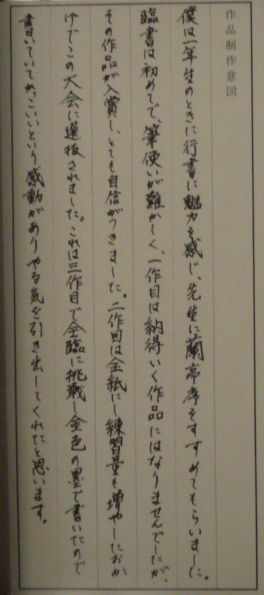 作品制作意図
僕は一年生のときに行書に魅力を感じ、先生に蘭亭序をすすめてもらいました。
臨書は初めてで、筆使いが難かしく、一作目は納得いく作品にはなりませんでしたが、
その作品が入賞し、とても自信がつきました。二作目は全紙にし練習量も増やしたおか
げでこの大会に選抜されました。これは三作目で全臨に挑戦し金色の墨で書いたので
書いていてかっこいいという感動がありやる気を引き出してくれたと思います。